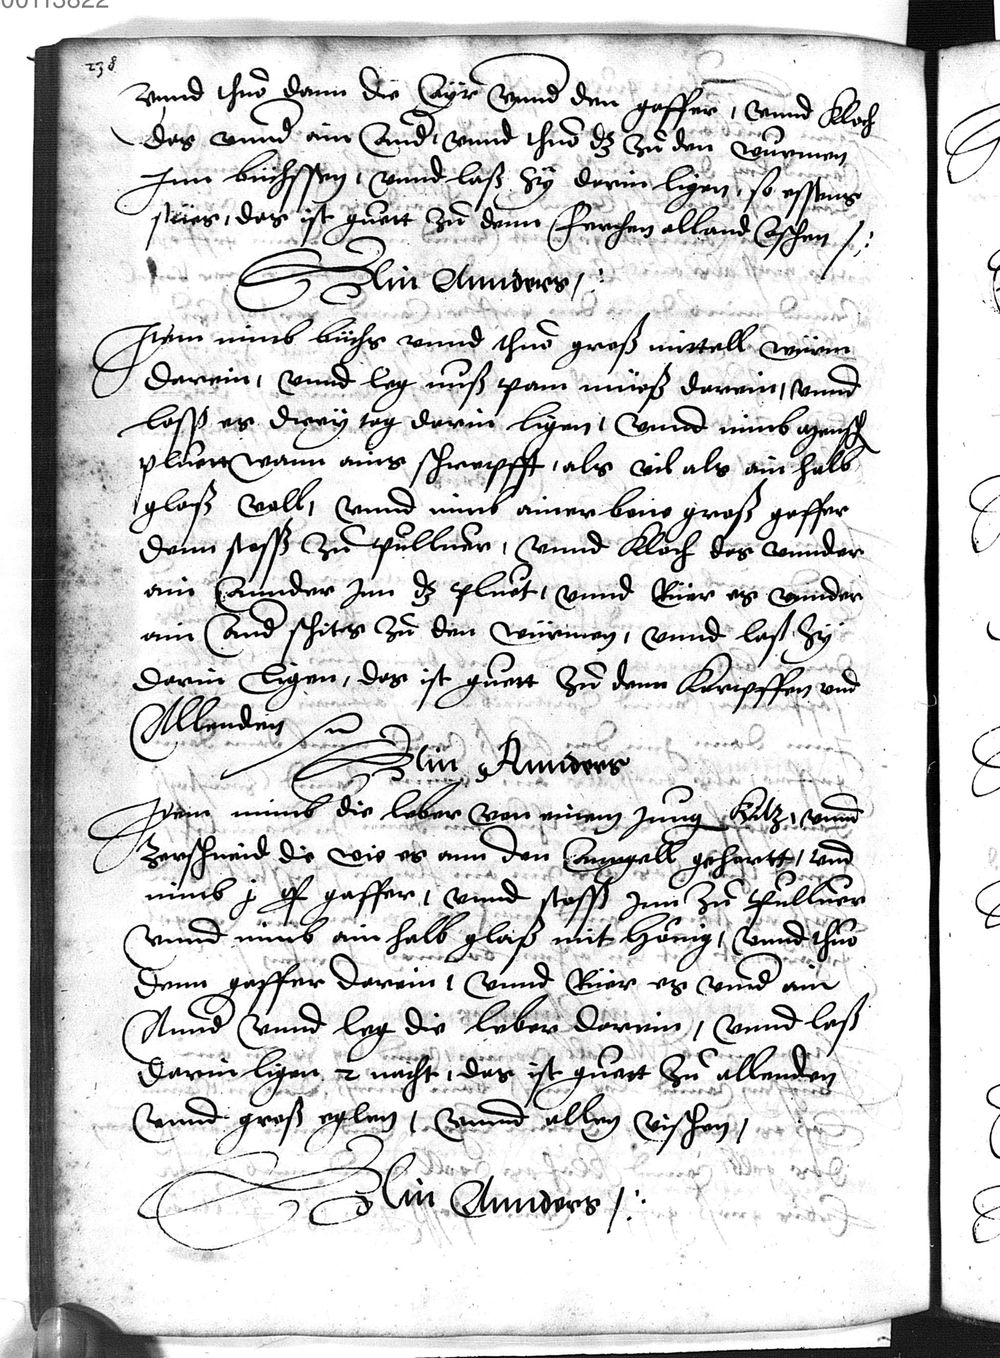 00113822
238
vnnd thuo dann die Ayr vnnd den gaffer, vnnd kloch
das vnnd ain And, vnnd thuo dz zu den wurmen
Inn büchssen, vnnd laß sy darin ligen, so essens
, das ist guett zu denn Ferchen alland Aschen /:
Ain Annders /:
Item nimb büchs vnnd thuo groß mittell würm
darein, vnnd leg nuß pam müeß darein, vnnd
lasß es drey tag darin ligen, vnnd nimb mensch
pluett wann ains schrepfft, als vil als ain halb
glaß voll, vnnd nimb ainer bone groß gaffer
denn stosß zu pulluer, vnnd kloch das vnnder
ain Annder Inn dz pluet, vnnd Rüer es vnnder
ain And schits zu den würmen, vnnd laß sy
darin Ligen, das ist guett zu denn karpffen vnd
Allenden
Ain Annders
Item nimb die leber von einem Jung kitz, vnnd
zerschneid die wie es ann den Anngell gehortt, vnd
nimb j gaffer, vnnd stosß Inn zu pulluer
vnnd nimb ain halb glaß mit hönig, vnnd thuo
denn gaffer darein, vnnd Rüer es vnnd ain
Annd vnnd leg die leber darein, vnnd laß
darin ligen 2 nacht, das ist guett zu allenden
vnnd groß eglen, vnnd allen vischen,
Ain Annders /: